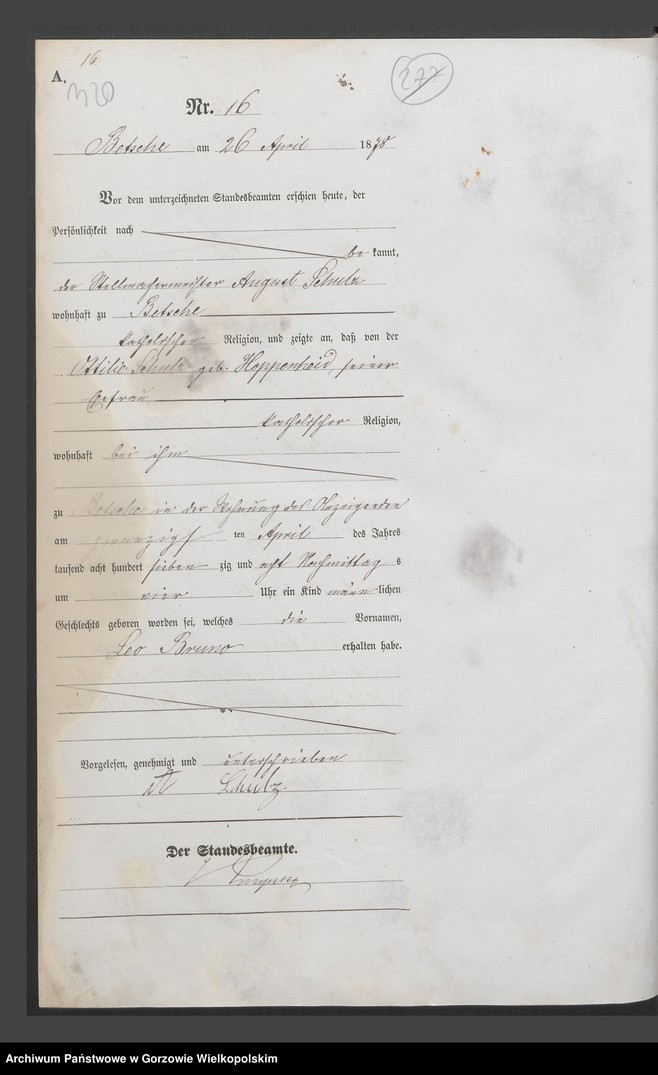 16
A.
320
277
Nr. 16
Betsche am 26 April 1878
Vor dem unterzeichneten Standesbeamten erschien heute, der
Persönlichkeit nach
be kannt,
der Stellmachermeister August Schulz
wohnhaft zu Betsche
katholischer Religion, und zeigte an, daß von der
Ottilie Schulz geb. Hoppenheid, seiner
Ehefrau
katholischer Religion,
wohnhaft bei ihm
zu Betsche in der Wohnung des Anzeigenden
am zwanzigsten April des Jahres
tausend acht hundert sieben zig und acht Nachmittag s
um vier Uhr ein Kind männ lichen
Geschlechts geboren worden sei, welches die Vornamen,
Leo Bruno erhalten habe.
Vorgelesen, genehmigt und unterschrieben
A Schulz
Der Standesbeamte.
Archiwum Państwowe w Gorzowie Wielkopolskim